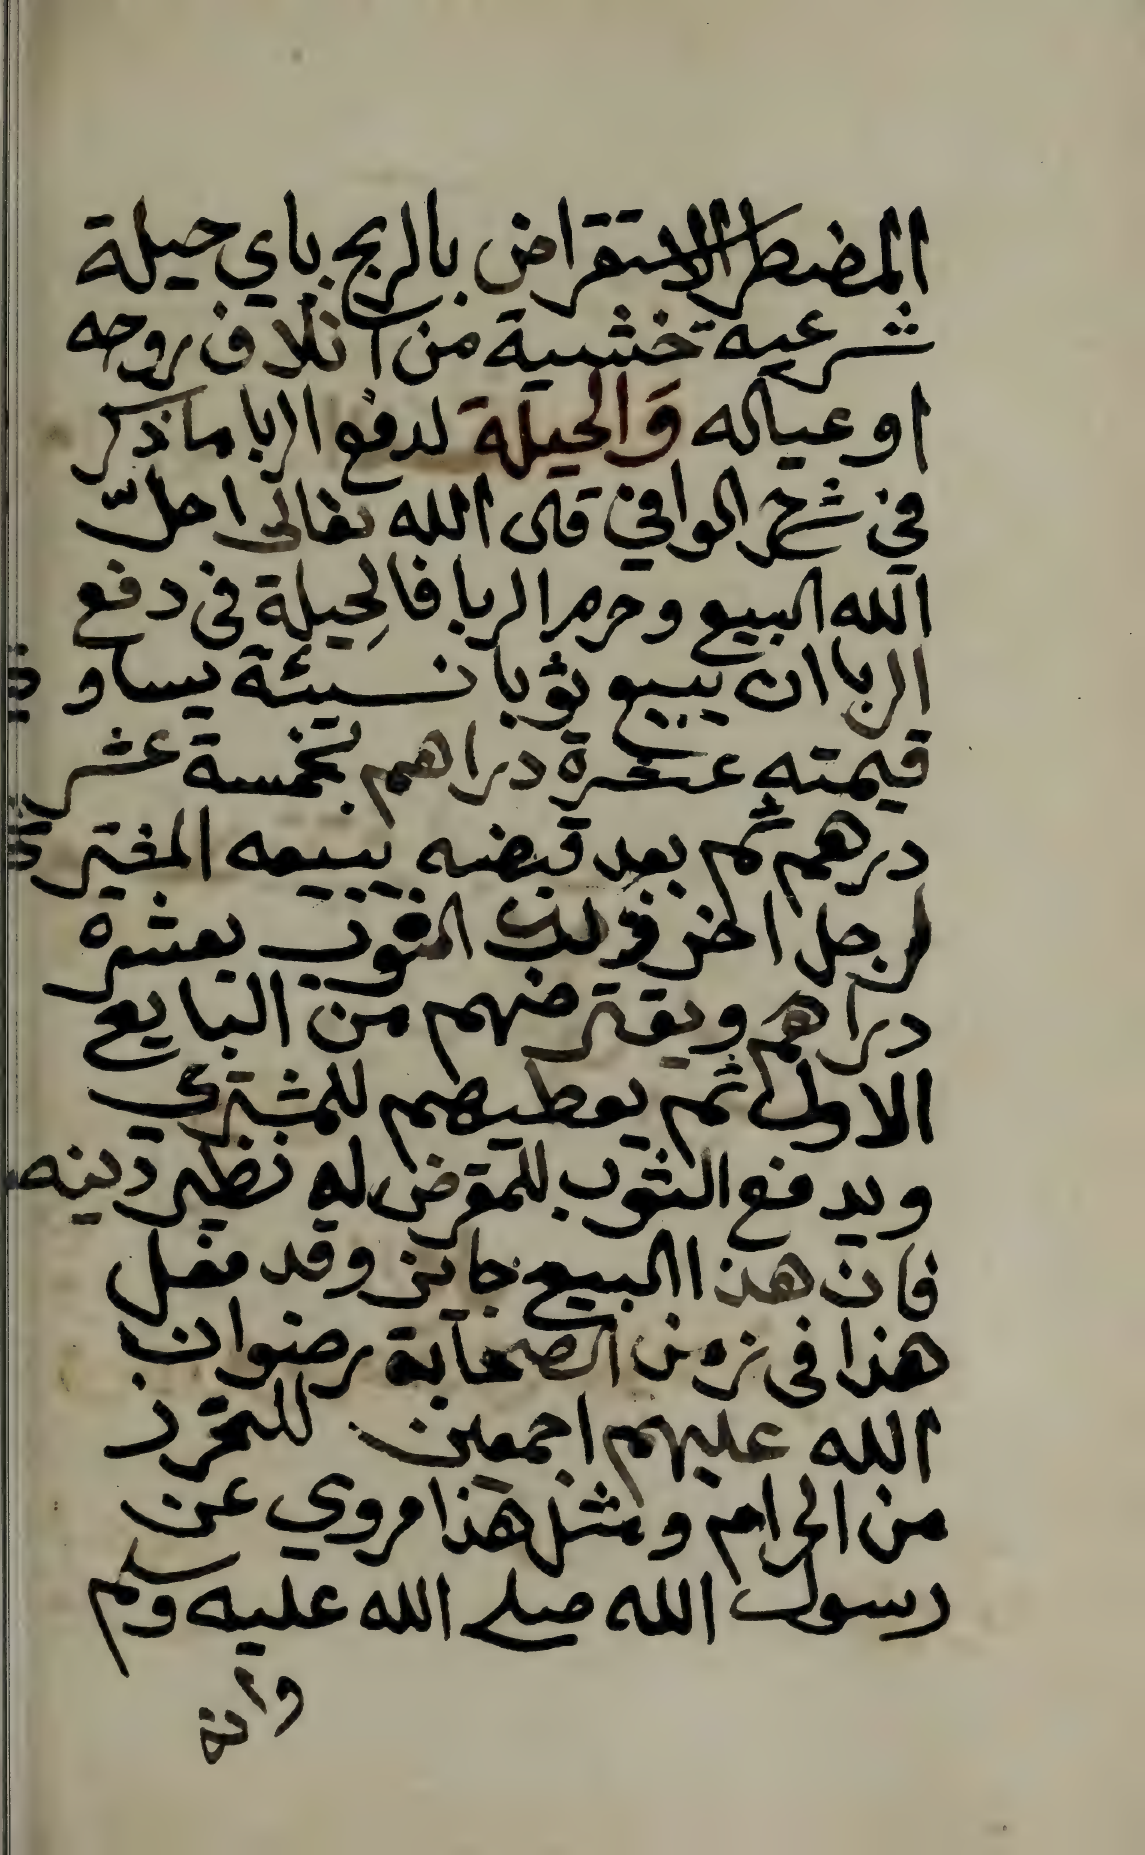 المضطر الاستقراض بالربح باي حيلة
شرعية خشية من اتلاف روحه
او عياله وَالحيلة لدفع الربا ما ذكر
في شرح الوافي قال الله تعالى احلّ
الله البيع وحرم الربا فالحِيلة في دفع
الربا ان يبيع ثوبا نسيئة يساوي
قيمته عشرة دراهم بخمسة عشر
درهم ثم بعد قبضه يبيعه المشتري
لرجل اخر ذلك الثوب بعشرة
دراهم ويقترضهم من البايع
الاول ثم يعطيهم للمشتري
ويدفع الثوب للمقرض له نظير دينه
فان هذا البيع جايز وقد فعل
هذا في زمن الصحابة رضوان
الله عليهم اجمعين للتحرز
من الحرام ومثل هذا مروي عن
رسول الله صلى الله عليه وسلم